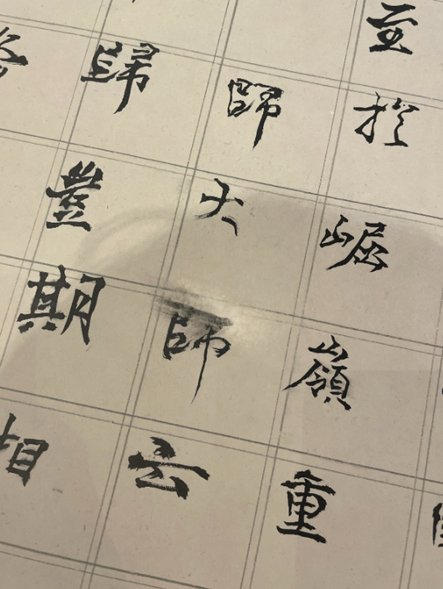 至於崛嶺重
師大師云
歸豈期相